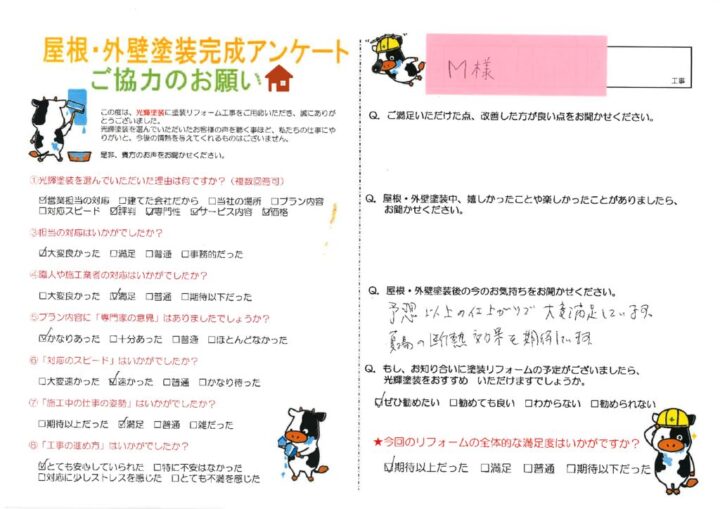 屋根・外壁塗装完成アンケート
ご協力のお願い
この度は、光輝塗装に塗装リフォーム工事をご用命いただき、誠にありが
とうございました。
光輝塗装を選んでいただいたお客様の声を聴く事ほど、私たちの仕事にや
りがいと、今後の情熱を与えてくれるものはございません。
是非、貴方のお声をお聞かせください。
①光輝塗装を選んでいただいた理由は何ですか?(複数回答可)
☑営業担当の対応 □建てた会社だから □当社の場所 □プラン内容
□対応スピード ☑評判 ☑専門性 ☑サービス内容 ☑価格
③担当の対応はいかがでしたか?
☑大変良かった □満足 □普通 □事務的だった
④職人や施工業者の対応はいかがでしたか?
□大変良かった ☑満足 □普通 □期待以下だった
⑤プラン内容に「専門家の意見」はありましたでしょうか?
☑かなりあった □十分あった □普通 □ほとんどなかった
⑥「対応のスピード」はいかがでしたか?
□大変速かった ☑速かった □普通 □かなり待った
⑦「施工中の仕事の姿勢」はいかがでしたか?
□期待以上だった ☑満足 □普通 □雑だった
⑧「工事の進め方」はいかがでしたか?
☑とても安心していられた □特に不安はなかった
□対応に少しストレスを感じた □とても不満を感じた
M様
工事
Q. ご満足いただけた点、改善した方が良い点をお聞かせください。
Q. 屋根・外壁塗装中、嬉しかったことや楽しかったことがありましたら、
お聞かせください。
Q. 屋根・外壁塗装後の今のお気持ちをお聞かせください。
予想以上の仕上がりで大変満足しています。
夏場の断熱効果も期待しています。
Q. もし、お知り合いに塗装リフォームの予定がございましたら、
光輝塗装をおすすめ いただけますでしょうか。
☑ぜひ勧めたい □勧めても良い □わからない □勧められない
★今回のリフォームの全体的な満足度はいかがですか?
☑期待以上だった □満足 □普通 □期待以下だった